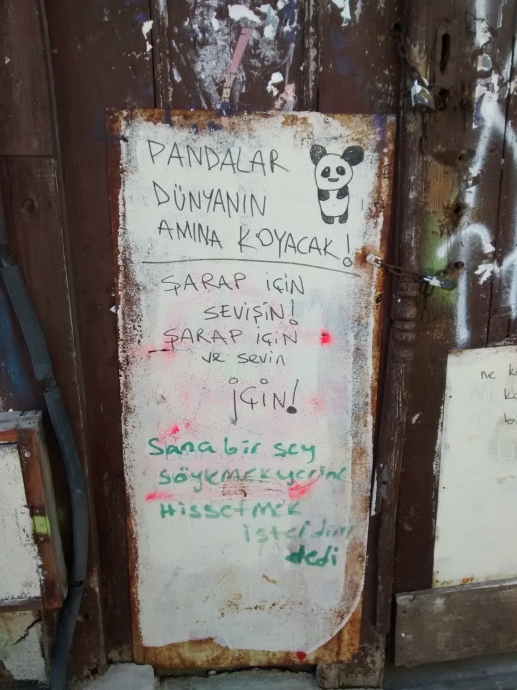 PANDALAR
DÜNYANIN
AMINA KOYACAK!
ŞARAP IÇİN
SEVİŞİN!
ŞARAP IÇİN
ve sevin
İÇİN!
Sana bir şey
söylemek yerine
Hissetmek
isterdim
dedi
ne
b